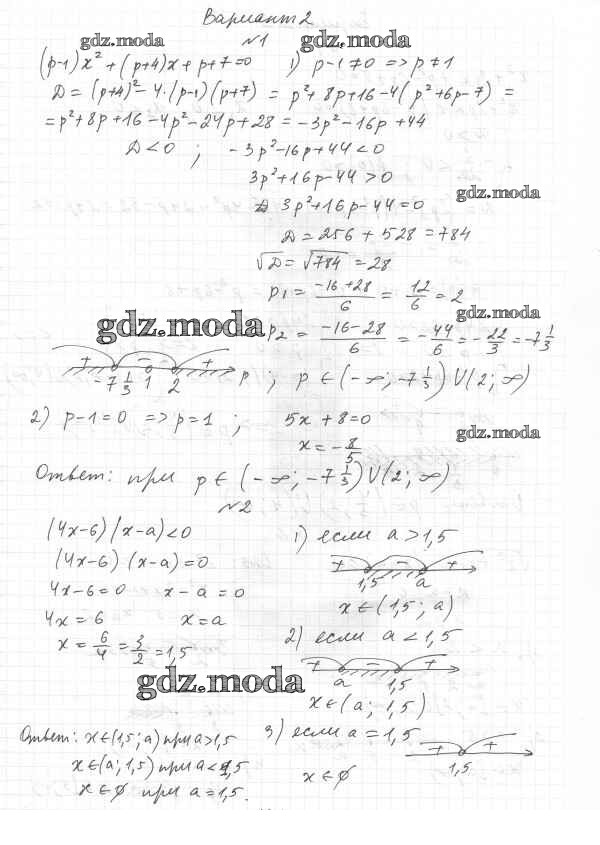 Вариант 2
gdz.moda
gdz.moda
№1
(p-1)x² + (p+4)x + p+7 = 0   1) p-1≠0 => p≠1
D = (p+4)² - 4·(p-1)(p+7) = p²+8p+16-4(p²+6p-7) =
= p²+8p+16-4p²-24p+28 = -3p²-16p+44
D<0 ; -3p²-16p+44<0
3p²+16p-44>0
gdz.moda
3p²+16p-44=0
D = 256 + 528 = 784
√D = √784 = 28
p₁ = (-16+28)/6 = 12/6 = 2
gdz.moda
gdz.moda
p₂ = (-16-28)/6 = -44/6 = -22/3 = -7 1/3
+ - +
-7 1/3 1 2 p ; p ∈ (-∞; -7 1/3) U (2; ∞)
2) p-1=0 => p=1 ; 5x+8=0
x = -8/5
gdz.moda
Ответ: при p ∈ (-∞; -7 1/3) U (2; ∞)
№2
(4x-6)(x-a)<0
(4x-6)(x-a)=0
4x-6=0   x-a=0
4x=6   x=a
x = 6/4 = 3/2 = 1,5
1) если a>1,5
+ - +
1,5 a
x∈(1,5; a)
2) если a<1,5
+ - +
a 1,5
x∈(a; 1,5)
gdz.moda
3) если a=1,5
+ +
1,5
x∈∅
Ответ: x∈(1,5; a) при a>1,5
x∈(a; 1,5) при a<1,5
x∈∅ при a=1,5.